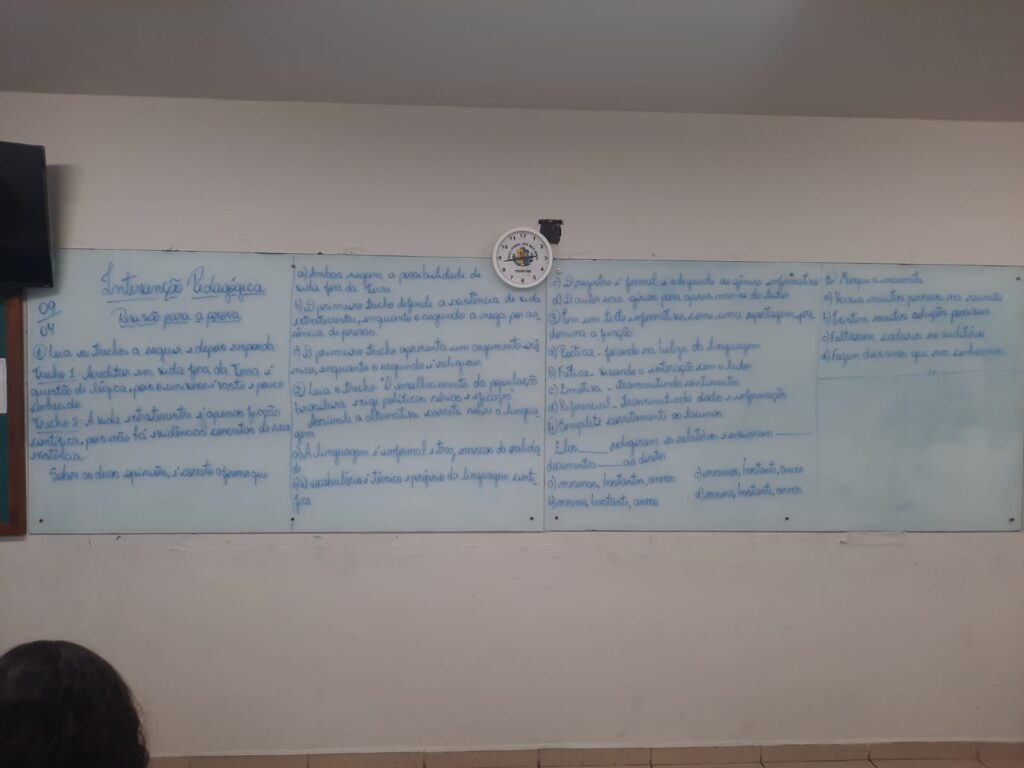 Intervenção Pedagógica
09
04
Revisão para a prova
1) Leia os trechos a seguir e depois responda
Trecho 1: Acreditar em vida fora da Terra é
questão de lógica, pois o universo é vasto e pouco
conhecido.
Trecho 2: A vida extraterrestre é apenas ficção
científica, pois não há evidências concretas de sua
existência.
Sobre as duas opiniões, é correto afirmar que:
a) Ambos negam a possibilidade de
vida fora da Terra.
b) O primeiro trecho defende a existência de vida
extraterrestre, enquanto o segundo a nega por au-
sência de provas.
c) O primeiro trecho apresenta um argumento
enquanto o segundo é religioso.
2) Leia o trecho: "O envelhecimento da população
brasileira exige políticas sérias e eficazes".
Assinale a alternativa correta sobre a lingua
gem.
a) A linguagem é informal e traz marcas da oralida
de
b) O vocabulário é técnico e próprio da linguagem cientí-
fica.
c) O registro é formal e adequado ao gênero informativo
d) O autor usa gírias para aproximar-se do leitor.
3) Em um texto informativo, como uma reportagem, pre
domina a função:
a) Poética - focando na beleza da linguagem
b) Fática - visando a interação com o leitor
c) Emotiva - transmitindo sentimentos
d) Referencial - transmitindo dados e informações
4) Complete corretamente as lacunas
Elas ____ redigiram os relatórios e enviaram ____
documentos ____ ao diretor.
a) mesmas, bastantes, anexos
b) mesmo, bastante, anexo
c) mesmas, bastante, anexo
d) mesmo, bastante, anexos
5) Marque a incorreta
a) Havia muitas pessoas na reunião
b) Existem muitas soluções possíveis
c) Faltaram cadeiras no auditório
d) Fazem dois anos que nos conhecemos